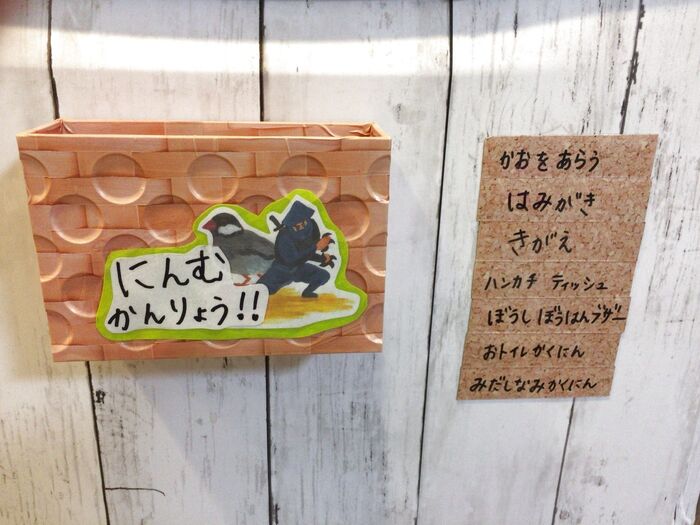 にんむ
かんりょう!!
かおをあらう
はみがき
きがえ
ハンカチ ティッシュ
ぼうし ぼうはんブザー
おトイレかくにん
みだしなみかくにん